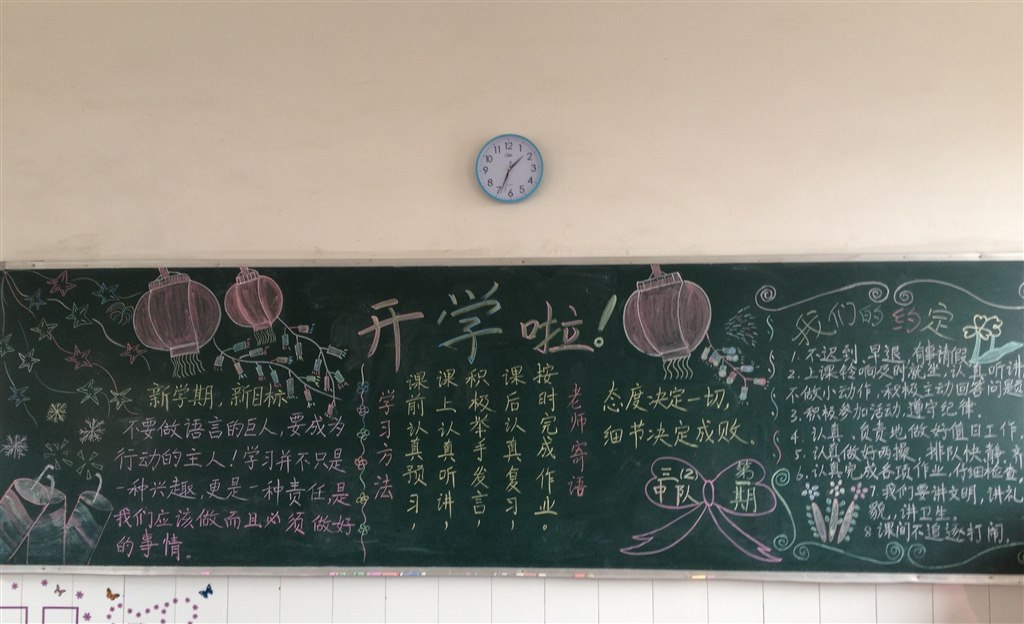 12
1
2
3
4
5
6
7
8
9
10
11
开学啦！
新学期，新目标
不要做语言的巨人，要成为
行动的主人！学习并不只是
一种兴趣，更是一种责任，是
我们应该做而且必须做好
的事情。
学习方法
课前认真预习，
课上认真听讲，
积极举手发言，
课后认真复习，
按时完成作业。
老师寄语
态度决定一切，
细节决定成败。
三(2)
中队
第一期
我们的约定
1. 不迟到，早退，有事请假
2. 上课铃响及时就坐，认真听讲
不做小动作，积极主动回答问题
3. 积极参加活动，遵守纪律。
4. 认真、负责地做好值日工作，
5. 认真做好两操，排队快静齐
6. 认真完成各项作业，仔细检查，
7. 我们要讲文明，讲礼
貌，讲卫生。
8 课间不追逐打闹。